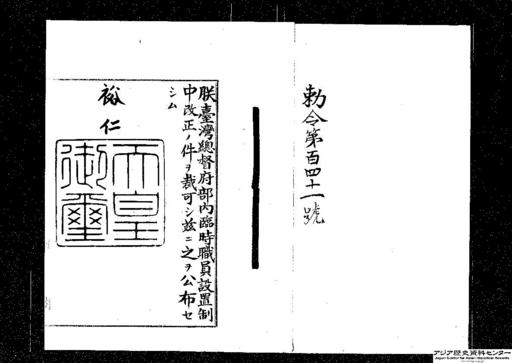 勅令第百四十一號
朕臺灣總督府部內臨時職員設置制
中改正ノ件ヲ裁可シ茲ニ之ヲ公布セ
シム
裕仁
天皇
御璽
アジア歴史資料センター
Japan Center for Asian Historical Records